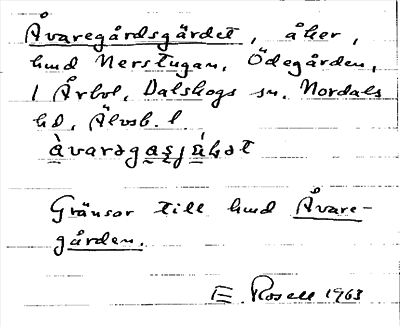 Åvaregårdsgärdet, åker,
hmd Nerstugan, Ödegården,
1 Årbol, Dalskogs sn. Nordals
hd, Älvsb. l
àvarəgasjúlət
Gränsar till hmd Åvare-
gården.
E. Rosell 1963